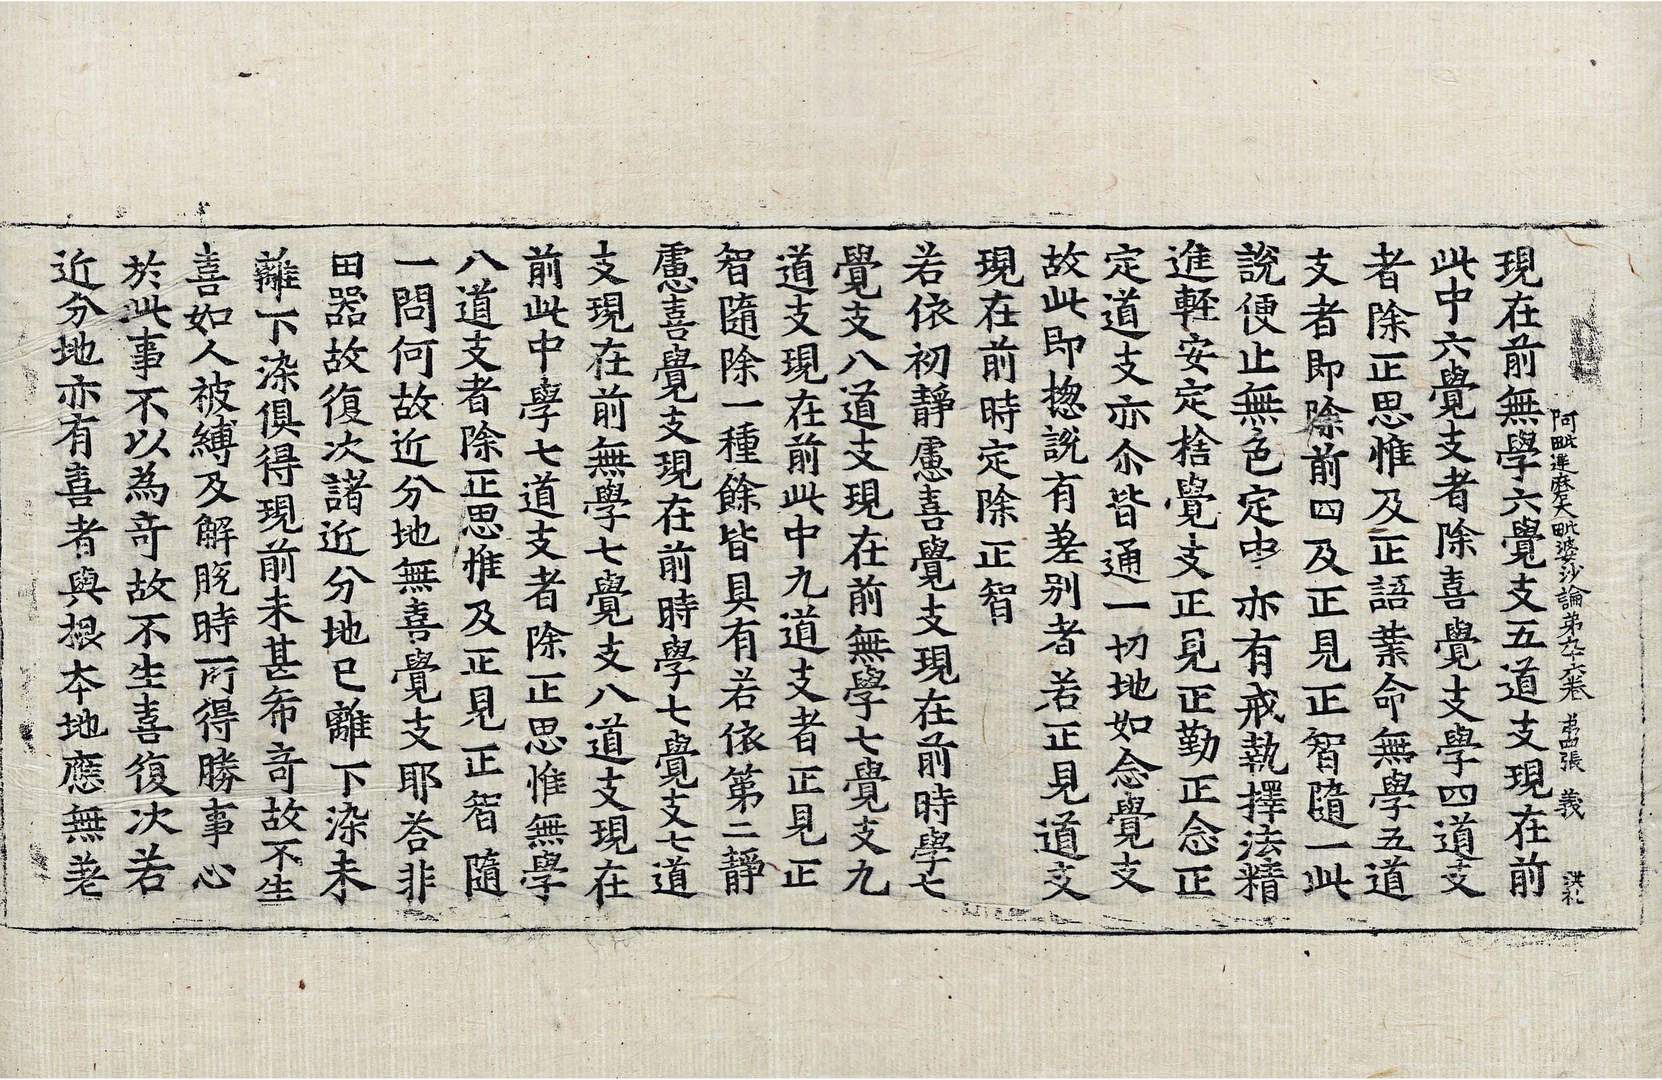 阿毗達磨大毗婆沙論苐九十六卷 苐四張 義 洪札
現在前無學六覺支五道支現在前
此中六覺支者除喜覺支學四道支
者除正思惟及正語業命無學五道
支者即除前四及正見正智隨一此
說便止無色定中亦有戒執擇法精
進輕安定捨覺支正見正勤正念正
定道支亦尒皆通一切地如念覺支
故此即揔說有差别者若正見道支
現在前時定除正智
若依初靜慮喜覺支現在前時學七
覺支八道支現在前無學七覺支九
道支現在前此中九道支者正見正
智隨除一種餘皆具有若依第二靜
慮喜覺支現在前時學七覺支七道
支現在前無學七覺支八道支現在
前此中學七道支者除正思惟無學
八道支者除正思惟及正見正智隨
一問何故近分地無喜覺支耶荅非
田器故復次諸近分地已離下染未
離下染俱得現前未甚希奇故不生
喜如人被縛及解脫時所得勝事心
於此事不以為奇故不生喜復次若
近分地亦有喜者與根本地應無差